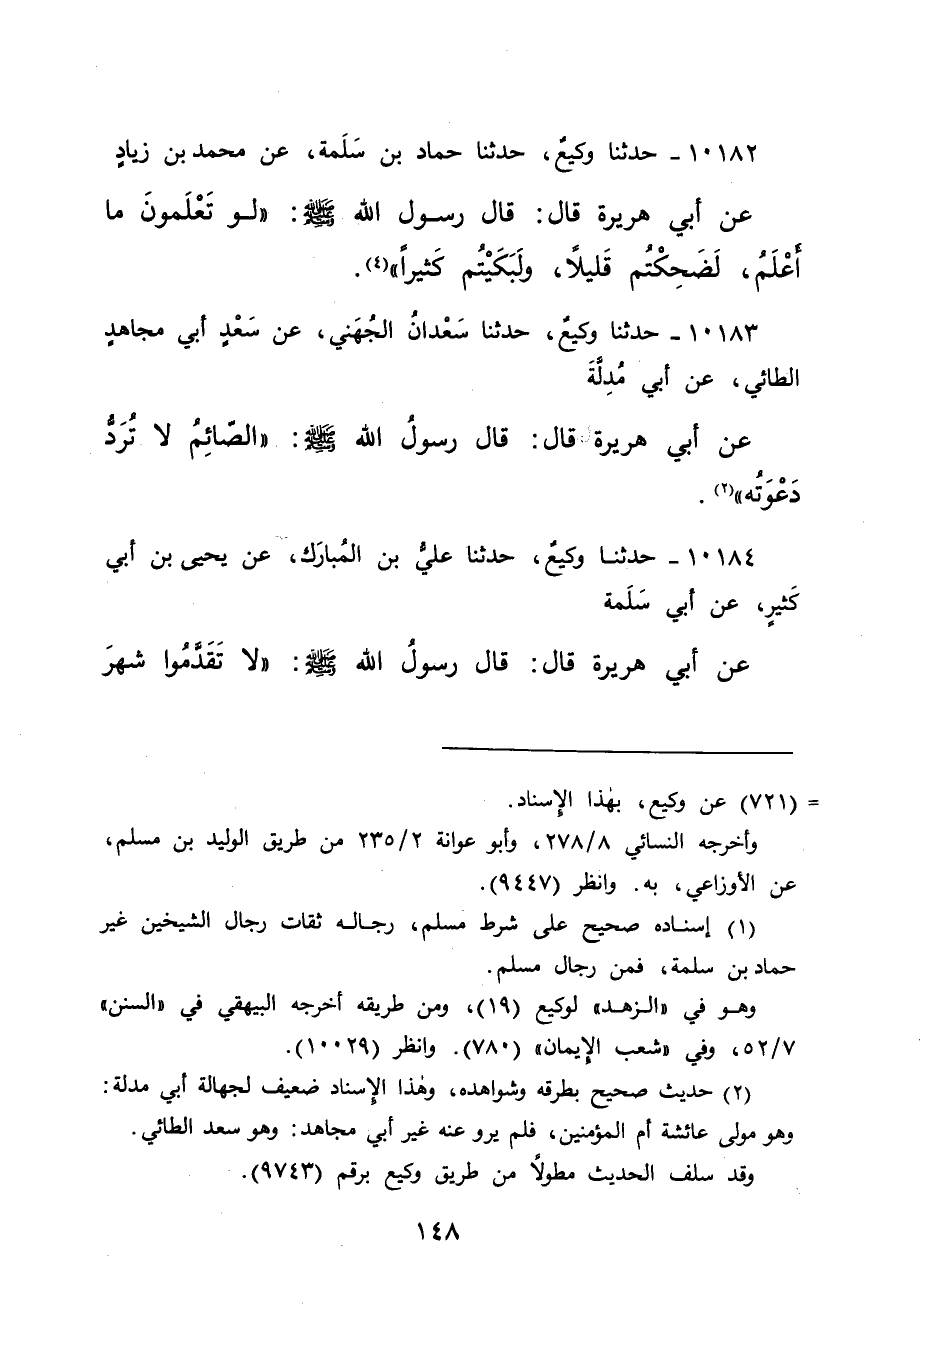 ١٠١٨٢ - حدثنا وكيعٌ، حدثنا حماد بن سَلَمة، عن محمد بن زيادٍ
عن أبي هريرة قال: قال رسول الله ﷺ: «لو تَعْلَمونَ ما
أَعْلَمُ، لَضَحِكْتُم قَليلاً، ولَبَكَيْتُم كَثيراً»(٤).
١٠١٨٣ - حدثنا وكيعٌ، حدثنا سَعْدانُ الجُهَني، عن سَعْدٍ أبي مجاهدٍ
الطائي، عن أبي مُدِلَّةَ
عن أبي هريرة قال: قال رسولُ الله ﷺ: «الصّائِمُ لا تُرَدُّ
دَعْوَتُه»(٢).
١٠١٨٤ - حدثنا وكيعٌ، حدثنا عليُّ بن المُبارَك، عن يحيى بن أبي
كَثيرٍ، عن أبي سَلَمة
عن أبي هريرة قال: قال رسولُ الله ﷺ: «لا تَقَدَّمُوا شهرَ
= (٧٢١) عن وكيع، بهٰذا الإِسناد.
وأخرجه النسائي ٢٧٨/٨، وأبو عوانة ٢٣٥/٢ من طريق الوليد بن مسلم،
عن الأوزاعي، به. وانظر (٩٤٤٧).
(١) إسناده صحيح على شرط مسلم، رجاله ثقات رجال الشيخين غير
حماد بن سلمة، فمن رجال مسلم.
وهو في «الزهد» لوكيع (١٩)، ومن طريقه أخرجه البيهقي في «السنن»
٥٢/٧، وفي «شعب الإِيمان» (٧٨٠). وانظر (١٠٠٢٩).
(٢) حديث صحيح بطرقه وشواهده، وهٰذا الإِسناد ضعيف لجهالة أبي مدلة:
وهو مولى عائشة أم المؤمنين، فلم يرو عنه غير أبي مجاهد: وهو سعد الطائي.
وقد سلف الحديث مطولاً من طريق وكيع برقم (٩٧٤٣).
١٤٨